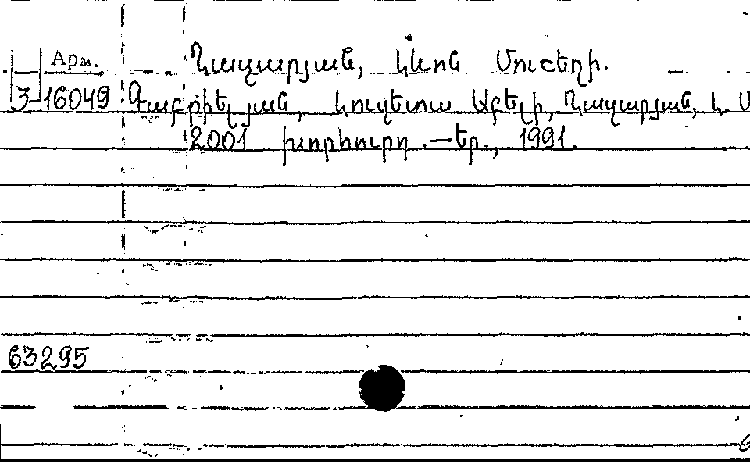 Арм. Ղազարյան, Լևոն Մուշեղի.
3-16049 Գաբրիելյան, Աբելի, Ղազարյան, Լ. Մ
2001 խորհուրդ.—Եր., 1991.
63295